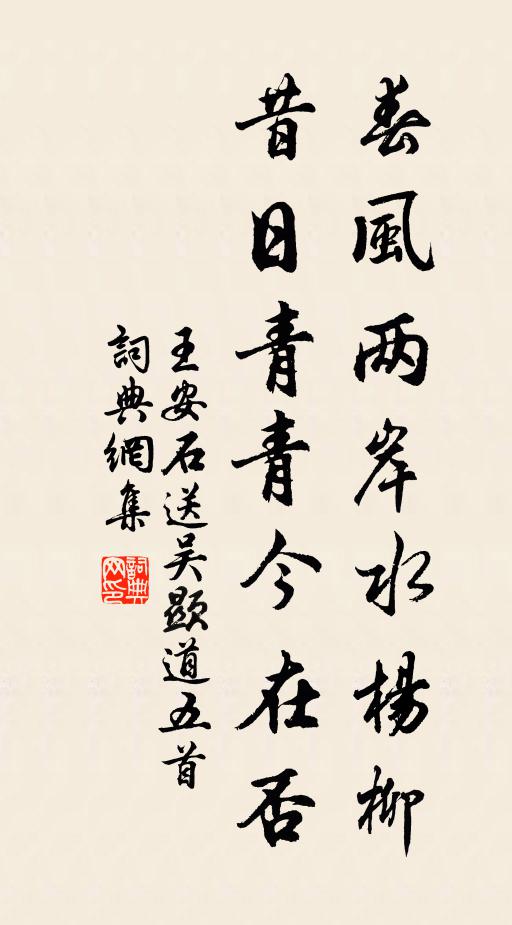 春風两岸水楊柳
昔日青青今在否
王安石送吴顯道五首
詞典網集
詞典網印